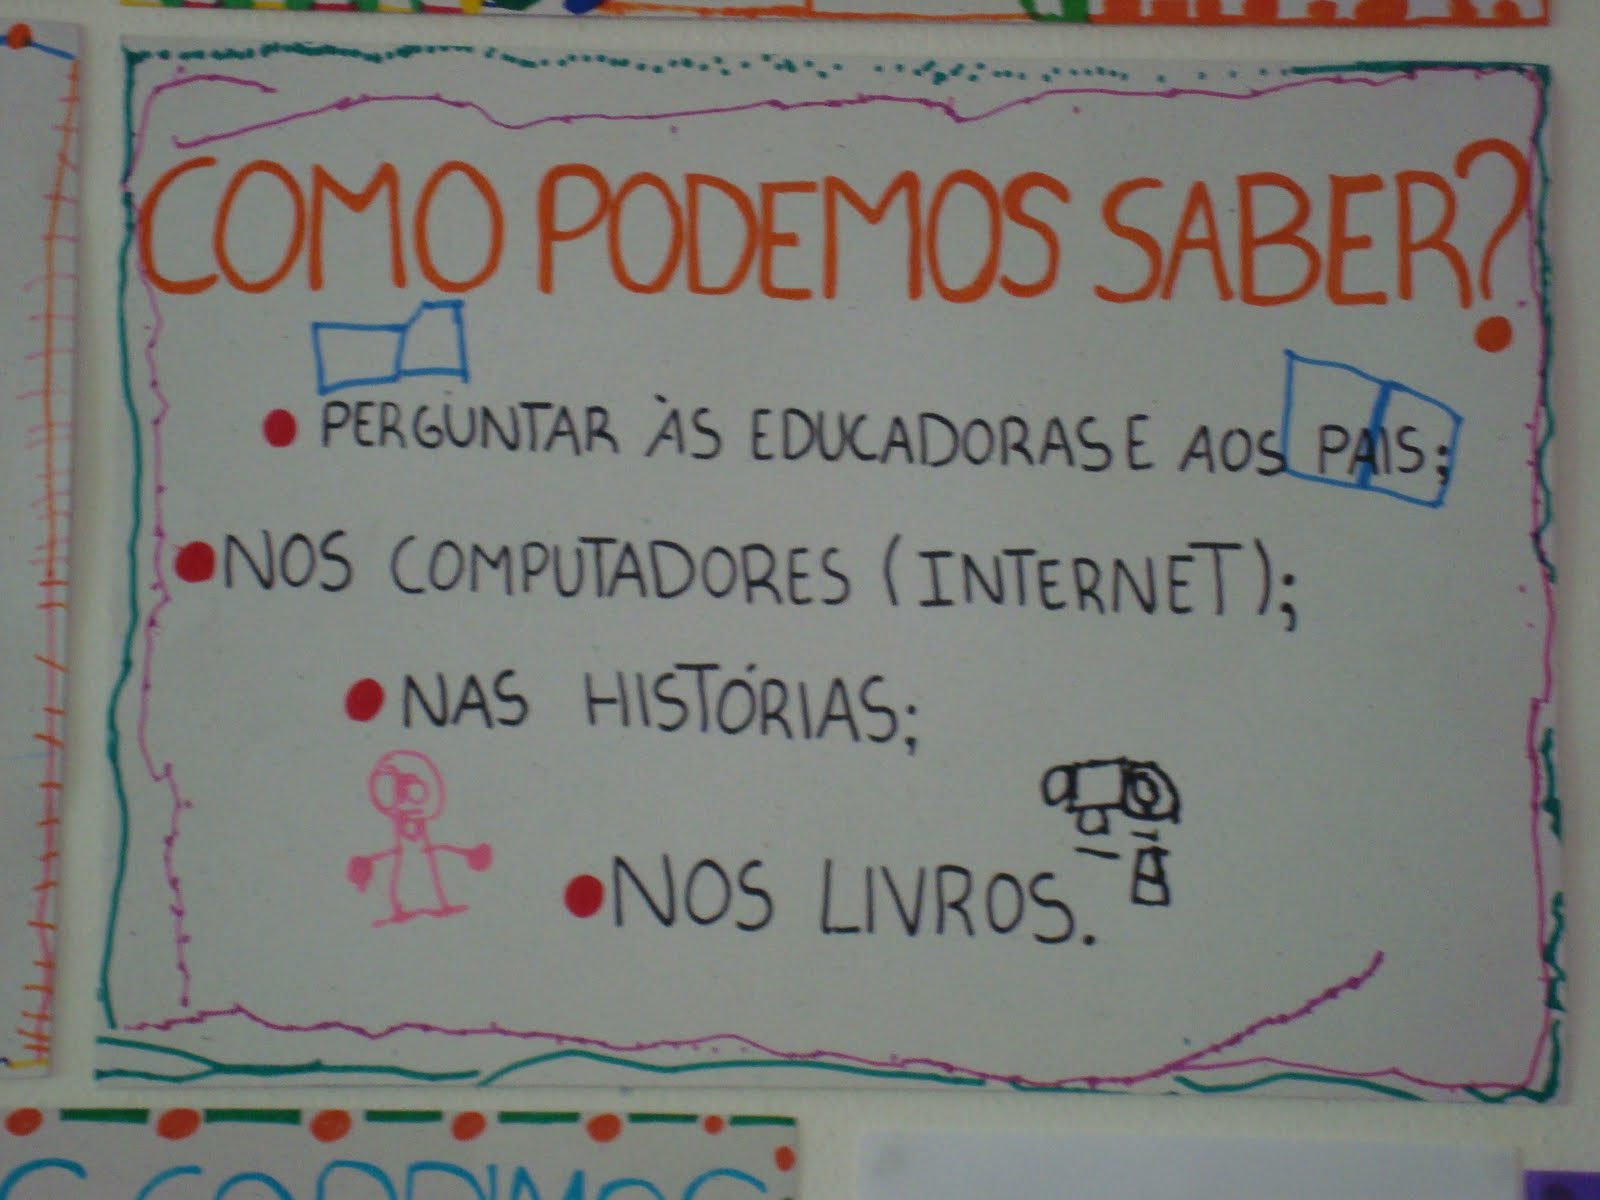 COMO PODEMOS SABER?
• PERGUNTAR ÀS EDUCADORAS E AOS PAIS;
• NOS COMPUTADORES (INTERNET);
• NAS HISTÓRIAS;
• NOS LIVROS.